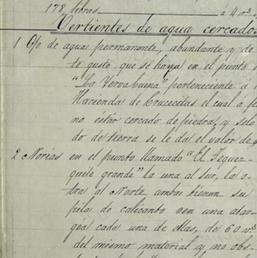 178 libras á 4 
Vertientes de agua cercados
1 Ojo de agua permanente, abundante y de
te gusto que se haya en el punto
"La Yervabuena" perteneciente á
Hacienda de Crucecitas el cual á
no estar cercado de piedra, y solo
do de tierra se le da el valor de
2 Norias en el punto llamado "El Teque
quite grande" la una al sur, la o
tra al Norte ambas tienen su
pila de calicanto con una atar
gea cada una de ellas, de 60 v.s
del mismo material y no obs